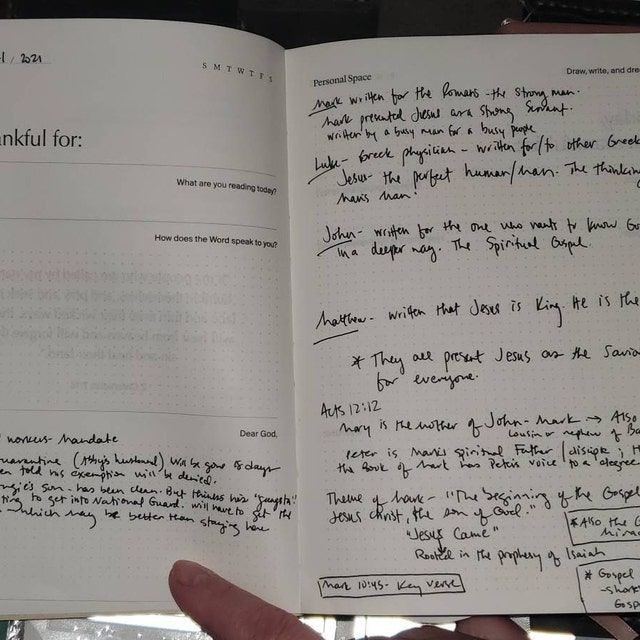 / 2021
S M T W T F S
nkful for:
What are you reading today?
How does the Word speak to you?
Dear God,
workers mandate
(Abby's husband) will be gone 15 days
told his exemption will be denied.
son has been clean. But thinks his "gangsta"
to get into National Guard. will have to get the
which may be better than staying here
Personal Space
Draw, write, and dre
Mark written for the Romans - the strong man.
Mark presented Jesus as a strong servant.
written by a busy man for a busy people
Luke - Greek physician - written for/to other Greek
Jesus - the perfect human/man. The thinking
man's man.
John - written for the one who wants to know Go
in a deeper way. The Spiritual Gospel.
Matthew - written that Jesus is King. He is the
* They all present Jesus as the Savio
for everyone.
Acts 12:12
Mary is the mother of John-Mark → Also
cousin or nephew of Ba
Peter is Mark's spiritual Father / disciple; H
the Book of Mark has Peter's voice to a degree
Theme of Mark - "The beginning of the Gospel
Jesus Christ, the son of God."
"Jesus Came"
* Also the G
Mirac
Rooted in the prophesy of Isaiah
Mark 10:45 - Key verse
* Gospel
- short
Gosp